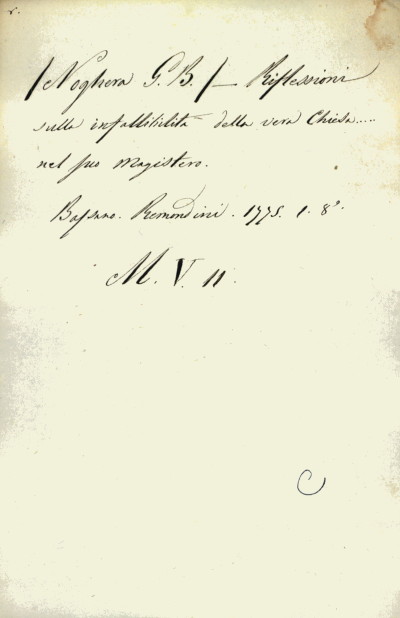 r.
/Noghera G. B./ — Riflessioni
sulla infallibilità della vera Chiesa....
nel suo magistero.
Bassano. Remondini. 1775. 1. 8°.
M. V. 11.
C